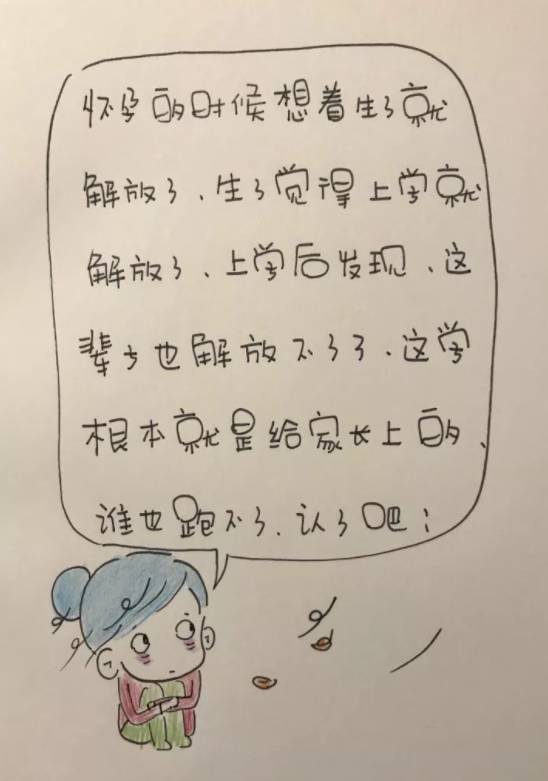 怀孕的时候想着生了就
解放了、生了觉得上学就
解放了、上学后发现、这
辈子也解放不了了、这学
根本就是给家长上的、
谁也跑不了、认了吧!